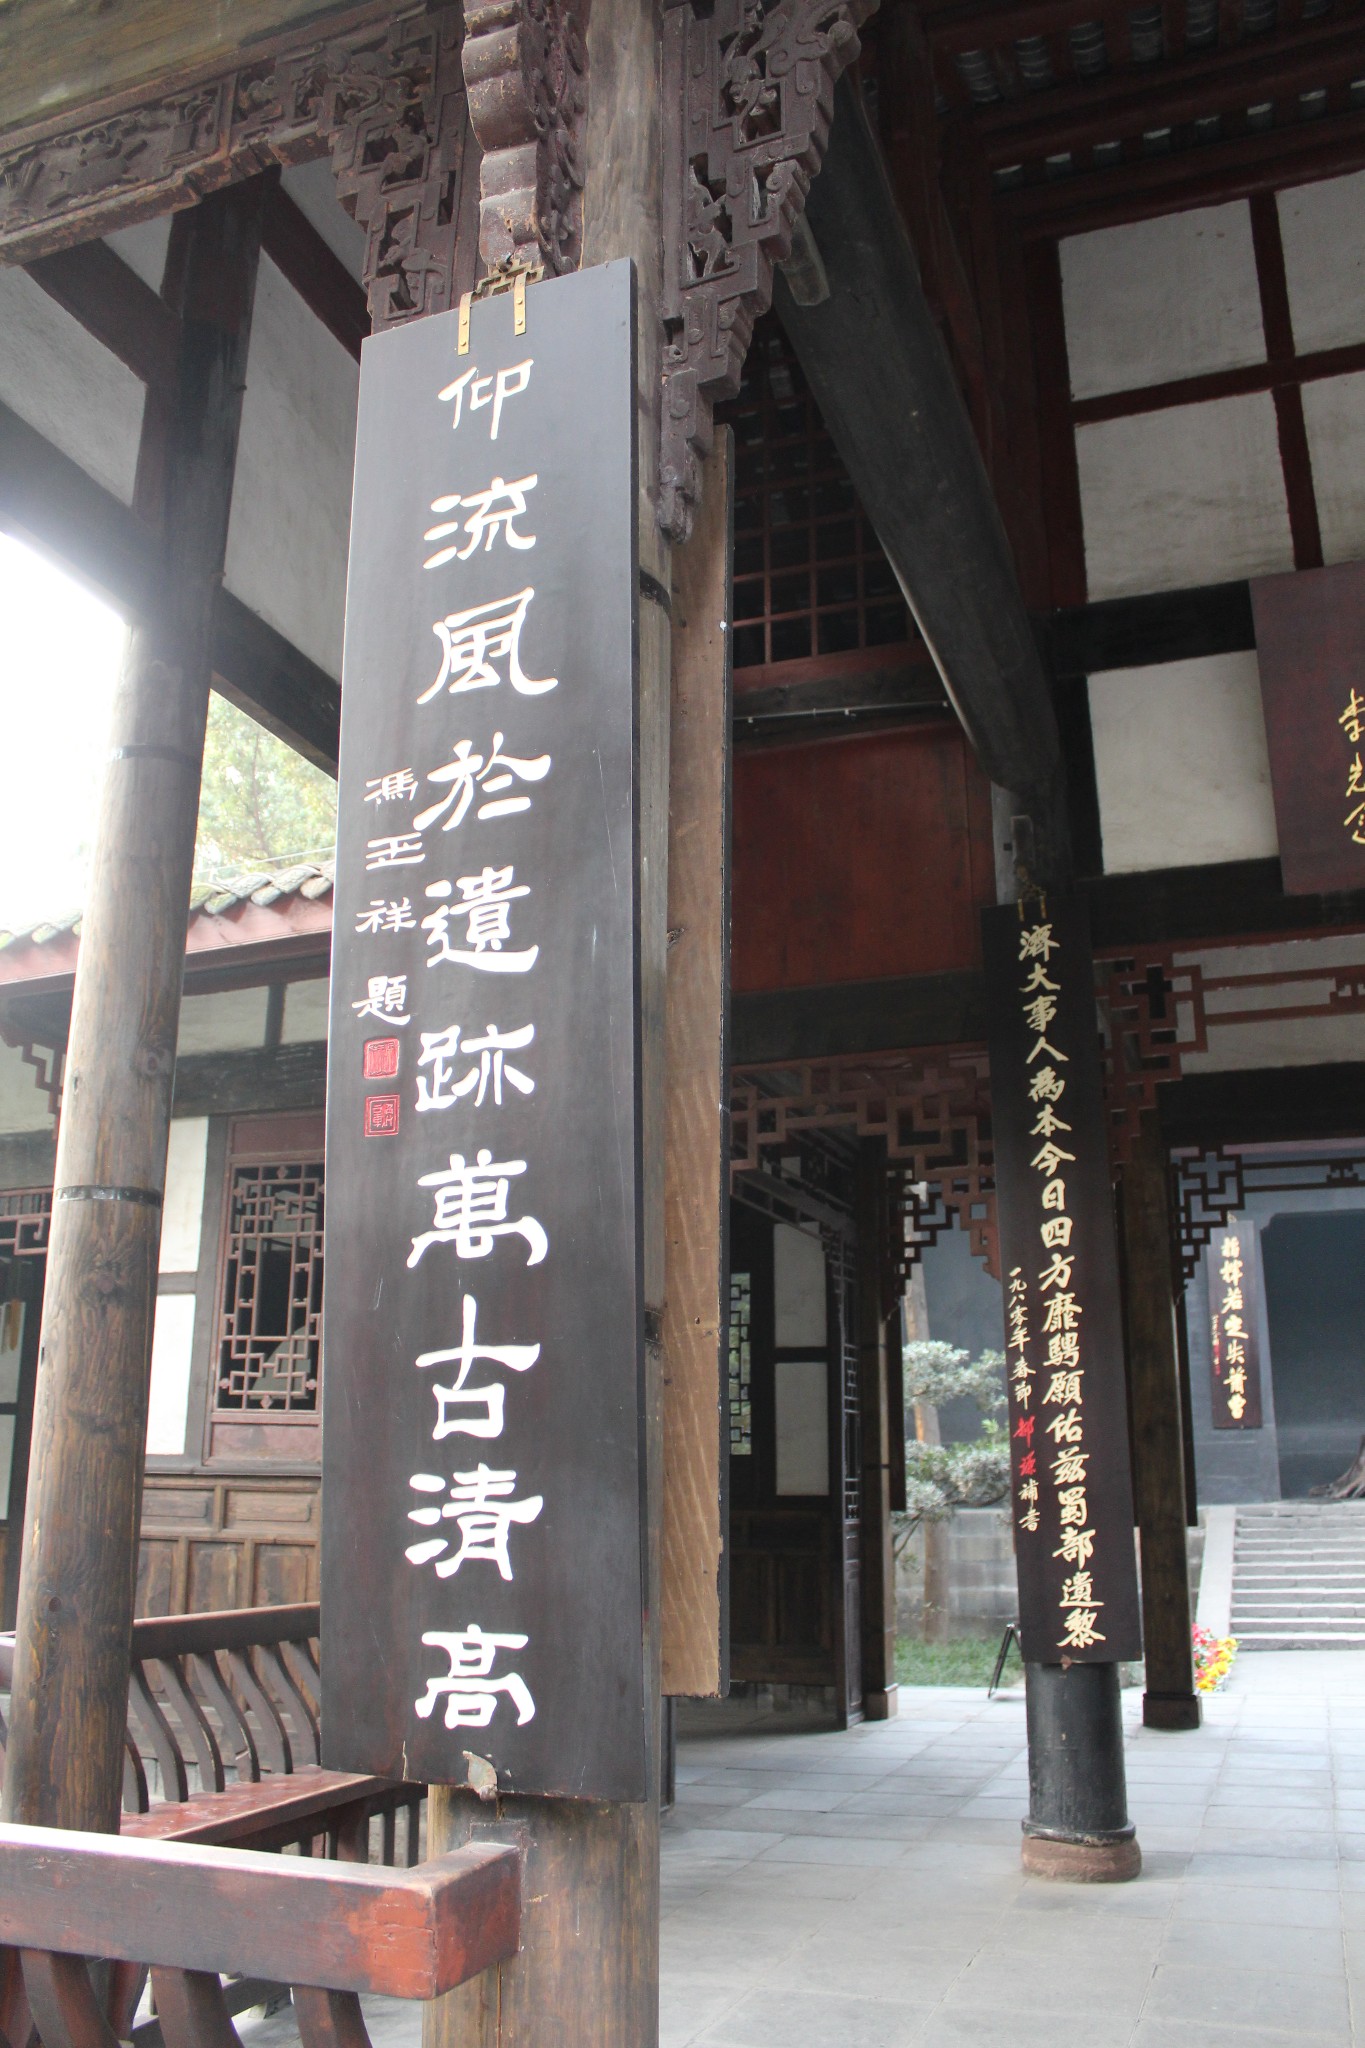 仰流風於遺跡萬古清高
馮正祥題
濟大事人為本今日四方靡騁願佑茲蜀部遺黎
一九八零年春節
補書
指揮若定失蕭曹